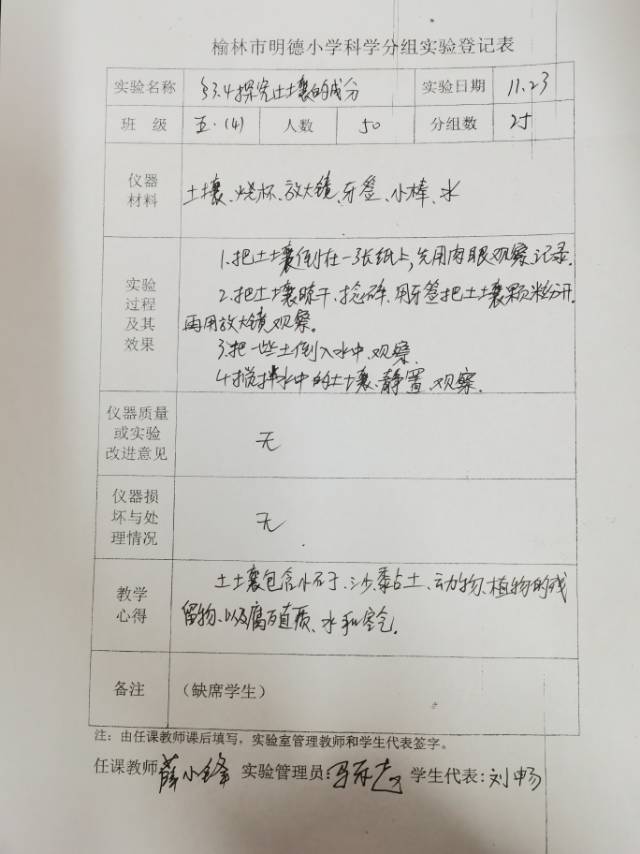 榆林市明德小学科学分组实验登记表
实验名称 §3.4探究土壤的成分 实验日期 11.23
班 级 五.(4) 人数 50 分组数 25
仪器
材料
土壤、烧杯、放大镜、牙签、小棒、水
实验
过程
及其
效果
1.把土壤倒在一张纸上,先用肉眼观察记录.
2.把土壤晾干、捻碎、用牙签把土壤颗粒分开.
再用放大镜观察。
3.把一些土倒入水中、观察.
4.搅拌水中的土壤、静置、观察.
仪器质量
或实验
改进意见
无
仪器损
坏与处
理情况
无
教学
心得
土壤包含小石子、沙、黏土、动物、植物的残
留物、以及腐殖质、水和空气.
备注 (缺席学生)
注:由任课教师课后填写,实验室管理教师和学生代表签字。
任课教师 薛小锋 实验管理员: 学生代表:刘畅